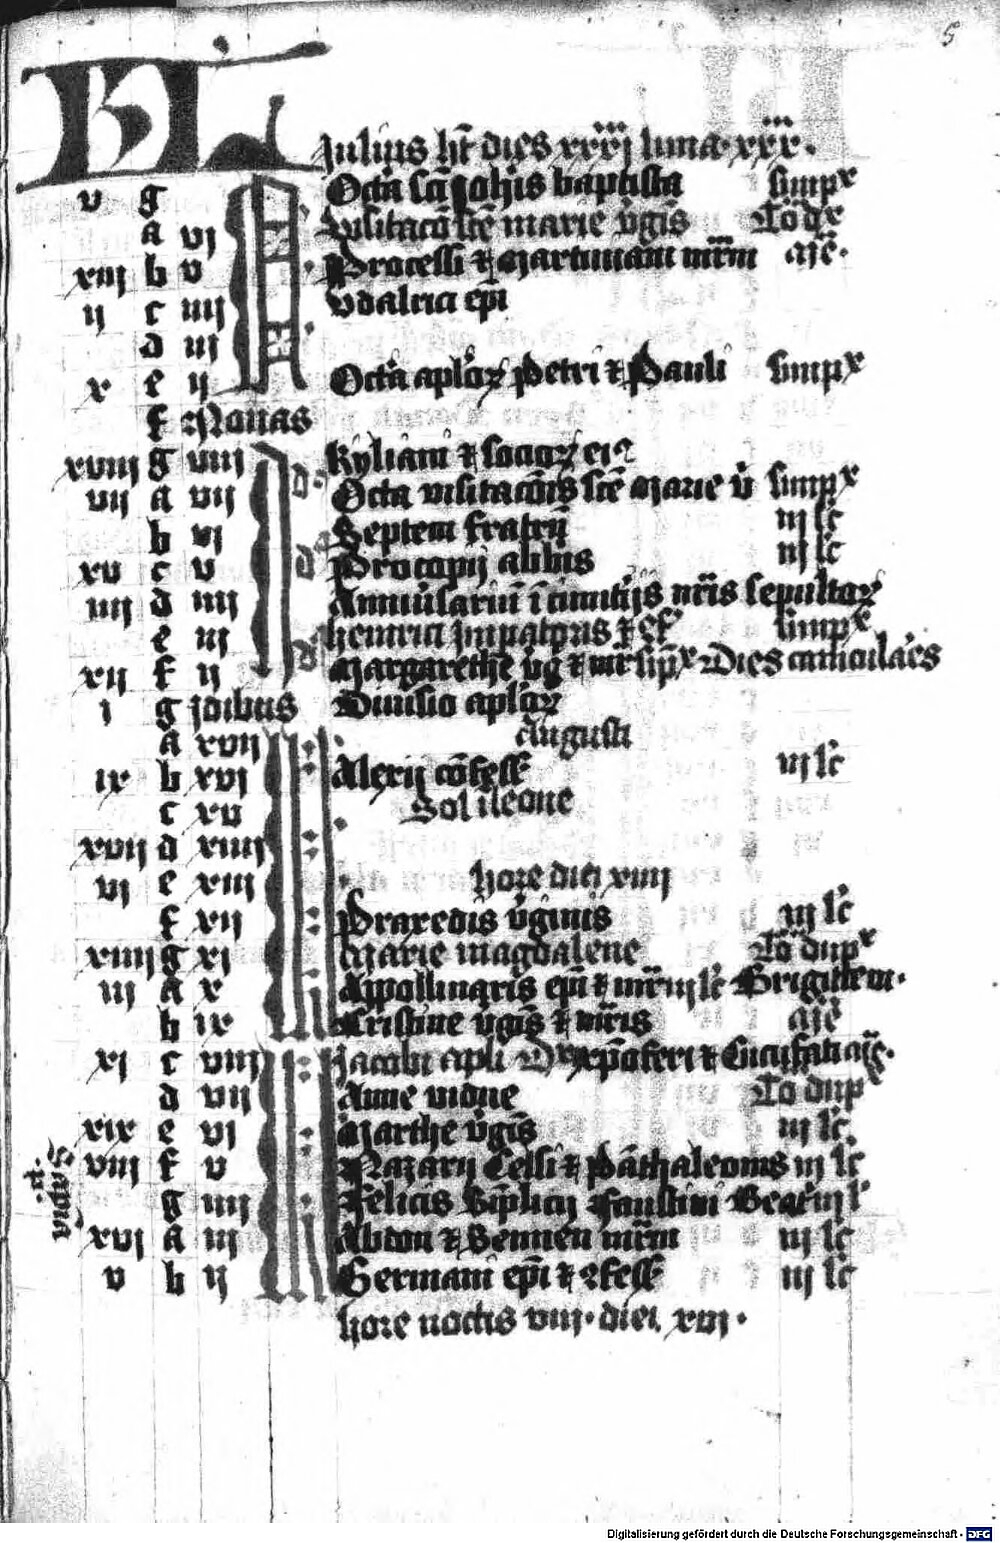 5
KL
Julius ht dies xxxj luna xxx.
v g Octa sci Johis baptiste simpx
a vj Visitaco sce marie vgis To dx
xiij b v Processi & Martiniani mrm
ij c iiij Vdalrici epi
d iij
x e ij Octa aplor Petri & Pauli simpx
f Nonas
xviij g viij Kyliani & socior ei9
vij a vij Octa visitacois sce Marie v simpx
b vj Septem fratru iij lc
xv c v Procopij abbis iij lc
iiij d iiij Anniversariu i cimitijs nris sepultor
e iij henrici Impatoris simpx
xij f ij Margarethe vg & mr simpx Dies caniculares
i g jdibus Diuisio aplor
a xvij Augusti
ix b xvj Alexij cofess iij lc
c xv Sol i leone
xvij d xiiij
vj e xiij hore diei xviij
f xij Praxedis vginis iij lc
xiiij g xj Marie magdalene To dupx
iij a x Appollinaris epi & mr iij lc Brigitte
b ix Cristine vgis & mris
xj c viij Jacobi apli xpoferi & Cucufatis
d vij Anne vidue To dupx
xix e vj Marthe vgis iij lc
viij f v Nazarij Celsi & Pathaleonis iij lc
g iiij Felicis Siplicij Faustini Beatr iij l
xvj a iij Abdon & Sennen mrm iij lc
v b ij Germani epi & cfess iij lc
hore noctis viij. diei xvj.
Digitalisierung gefördert durch die Deutsche Forschungsgemeinschaft - DFG